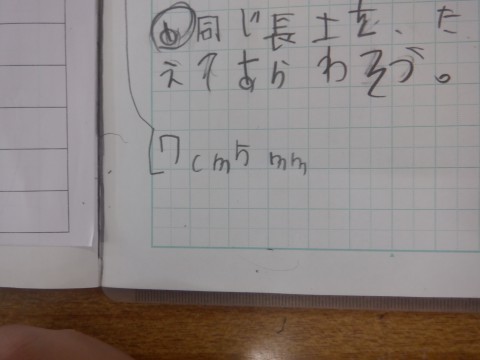 め 同じ長さを、た
えてあらわそう。
7cm5mm